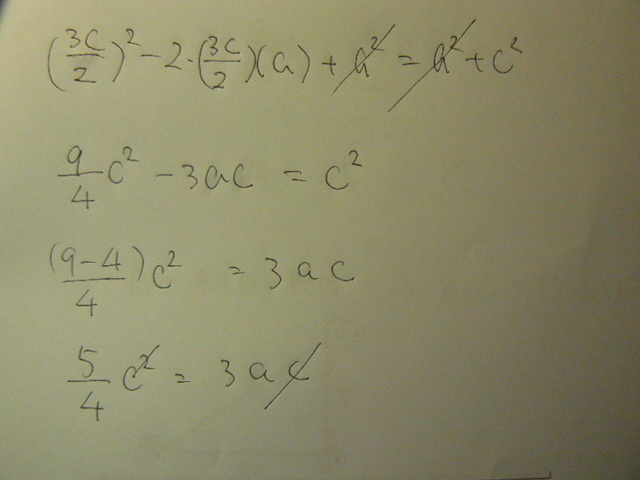 (3c/2)² - 2·(3c/2)(a) + a² = a² + c²
9/4 c² - 3ac = c²
(9-4)/4 c² = 3ac
5/4 c² = 3ac